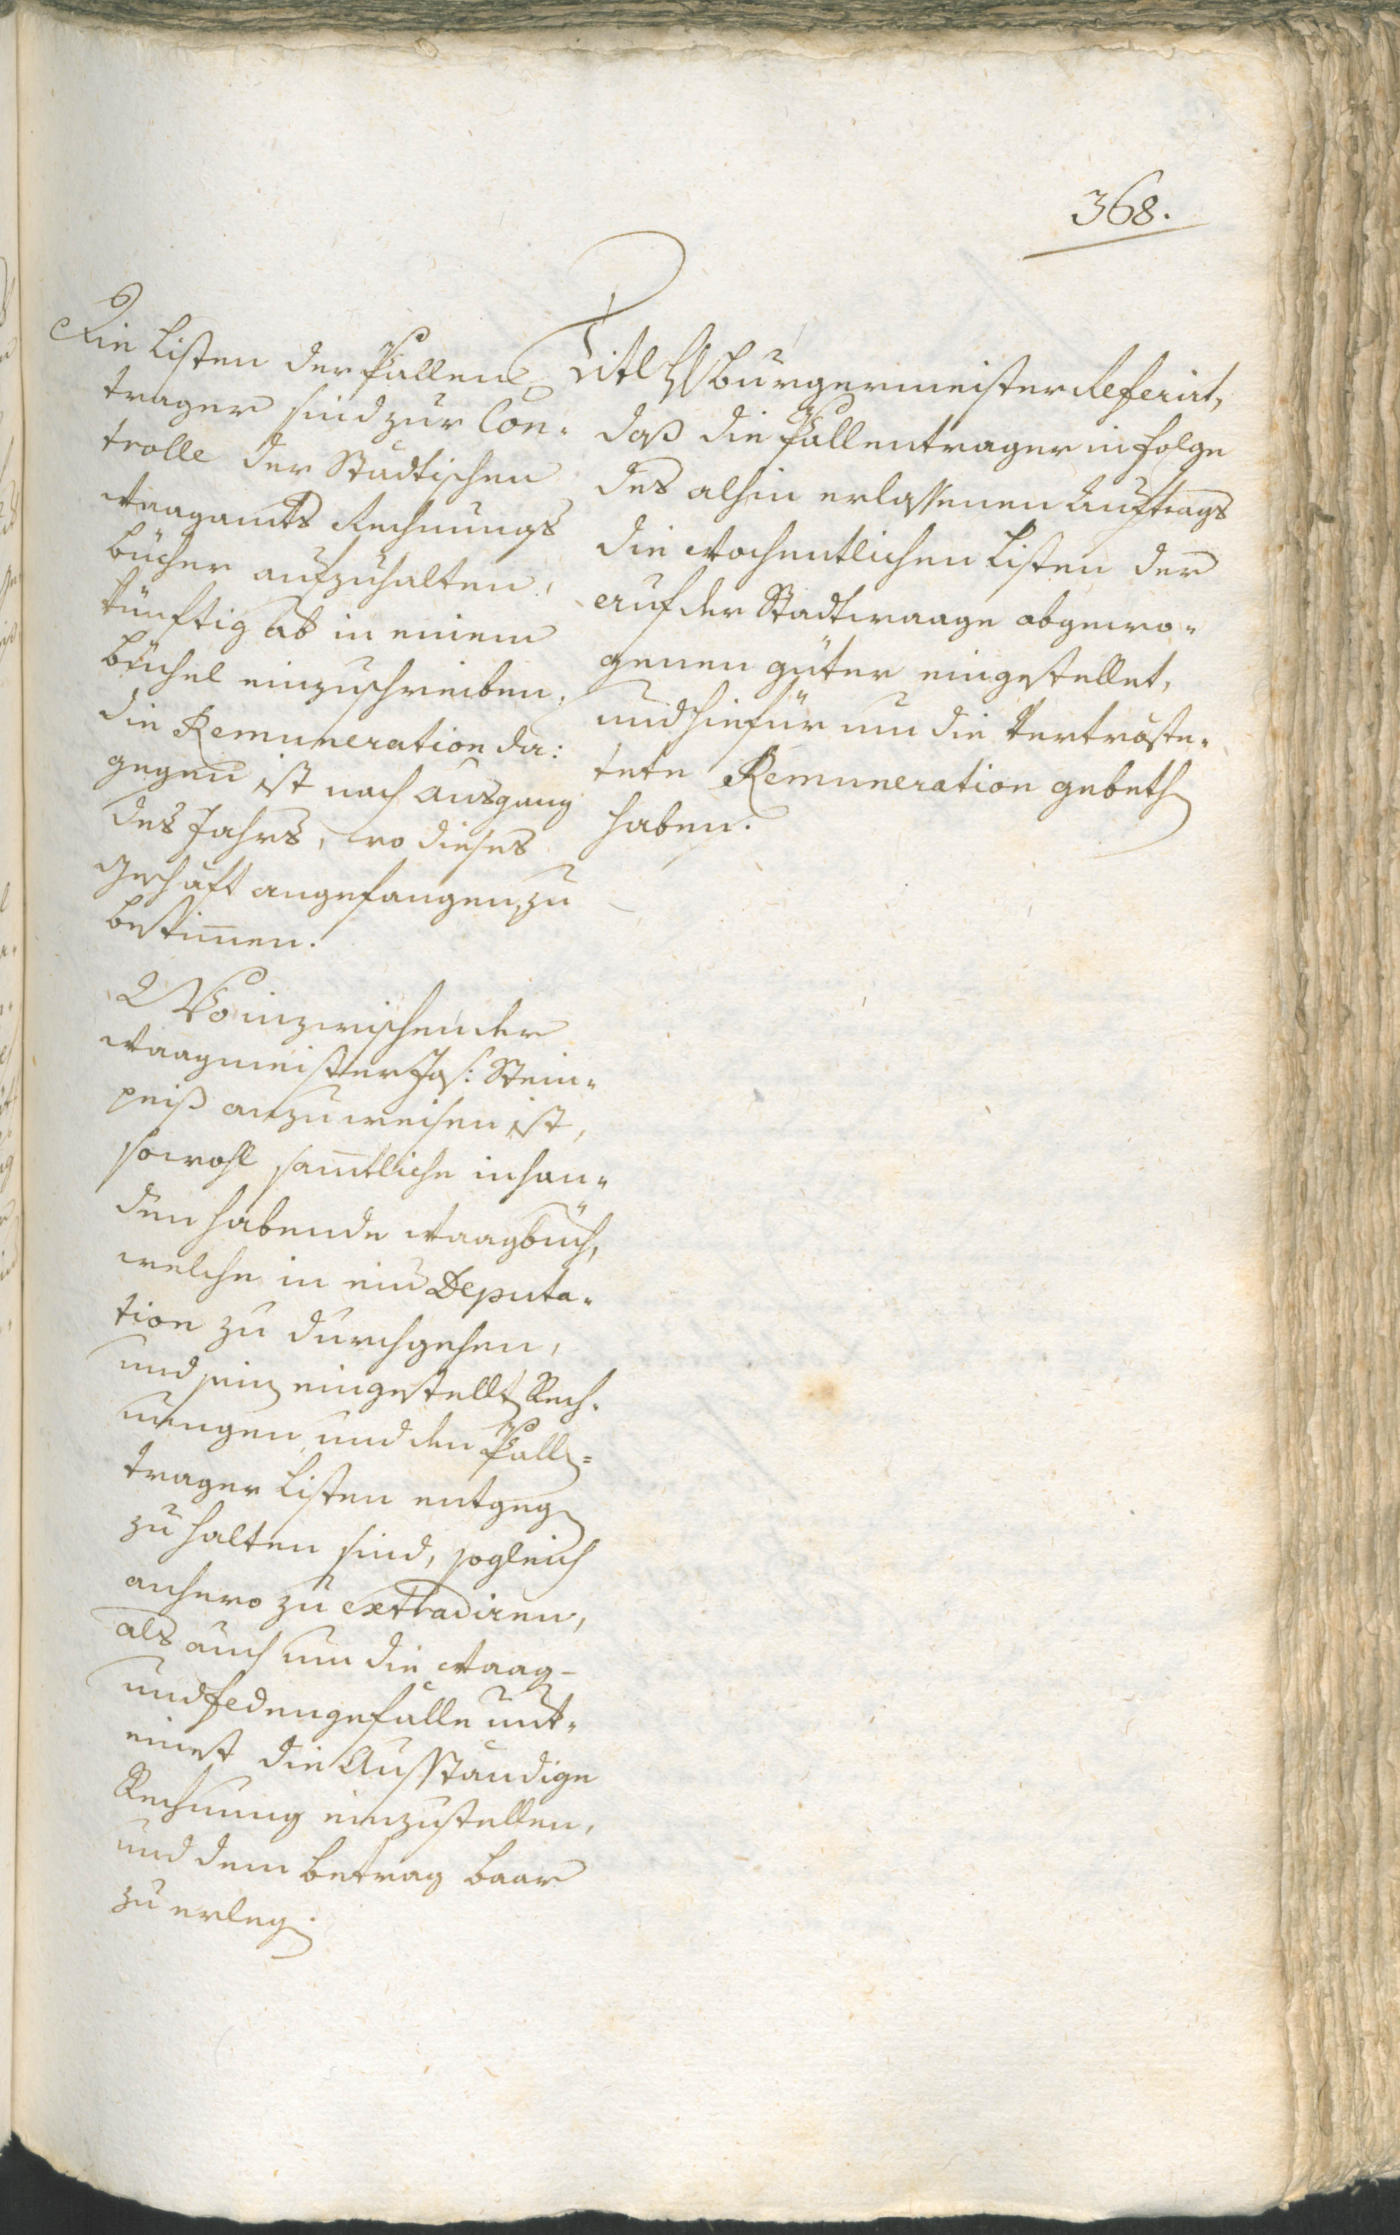 368.
Die Listen der Pallen
trager sind zur Con:
trolle der Städtischen
Waagamts Rechnungs
bücher aufzuhalten,
künftig ab in einem
büchel einzuschreiben,
die Remuneration da:
gegen ist nach Ausgang
des Jahrs, wo dieses
Geschäft angefangen, zu
bestimen.
Wo inzwischen der
Waagmeister Jos: Stein=
peiß anzuweisen ist,
sowohl samtliche inhan=
den habende Waagbüch,
welche in ein Deputa=
tion zu durchgehen,
und sein eingestellt Rech=
nungen und den Pall=
trager Listen entgeg
zu halten sind, sogleich
anhero zu extradiren,
als auch um die Waag-
und gefälle
die Ausständige
Rechnung einzustellen,
und dem betrag baar
zu erleg.
Titl H burgermeister Referirt,
daß die Pallentrager in folge
des alhin erlassenen Auftrags
die Wochentlichen Listen der
auf der Stadtwaage abgewo=
genen güter eingestellet,
und hiefür um die Vertröste=
tete Remuneration gebeth
haben.